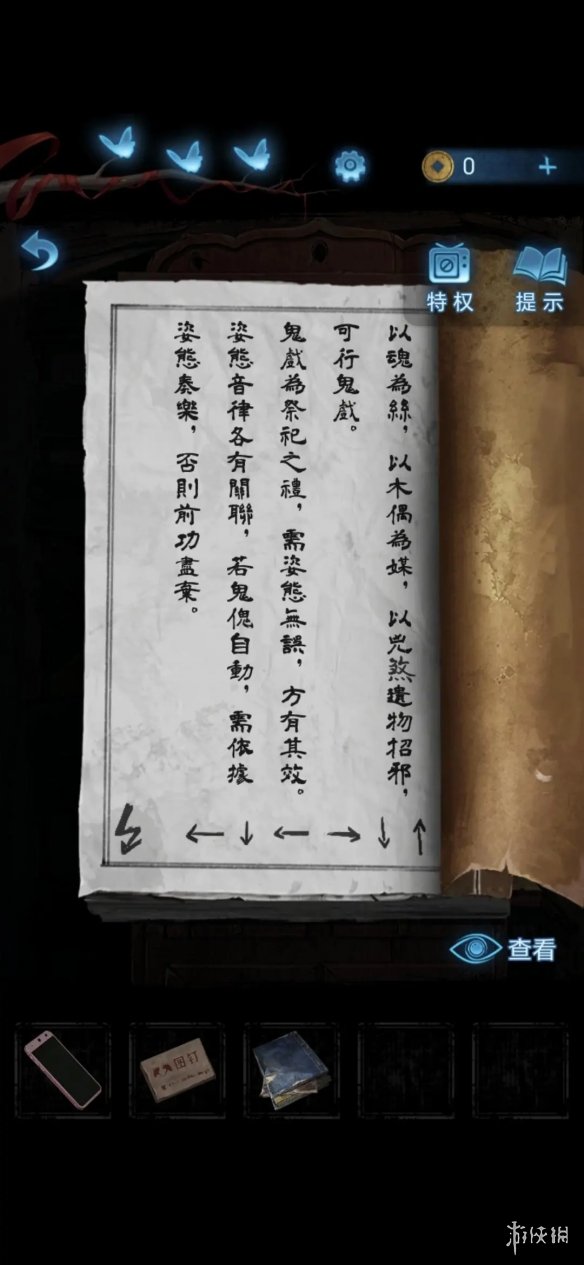 0
特权
提示
以魂為絲，以木偶為媒，以兇煞遺物招邪，
可行鬼戲。
鬼戲為祭祀之禮，需姿態無誤，方有其效。
姿態音律各有關聯，若鬼傀自動，需依據
姿態奏樂，否則前功盡棄。
↑ ↓ → ← ↓ ←
查看
图钉
游侠网